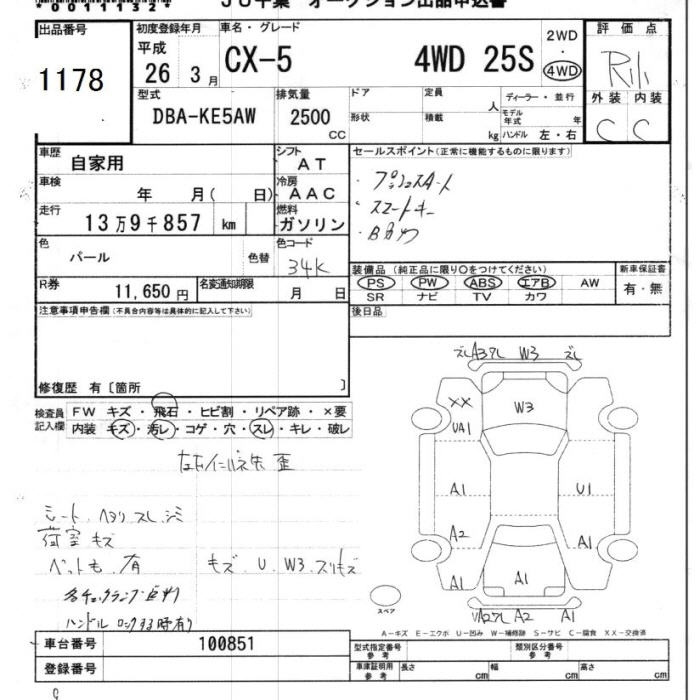 *0011132*
JU千葉 オークション出品申込書
出品番号 1178
初度登録年月 平成 26 3月
車名・グレード CX-5 4WD 25S
2WD・4WD
評価点
外装 内装
C C
型式 DBA-KE5AW
排気量 2500 CC
ドア 定員 人
形状 積載 kg
ディーラー・並行
モデル年式 年
ハンドル 左・右
車歴 自家用
シフト AT
セールスポイント(正常に機能するものに限ります)
・プッシュスタート
・スマートキー
車検 年 月( 日)
冷房 AAC
走行 13万9千857 km
燃料 ガソリン
色 パール 色替
色コード 34K
装備品(純正品に限り○をつけてください)
PS PW ABS エアB AW
SR ナビ TV カワ
新車保証書 有・無
R券 11,650円
名変通知期限 月 日
後日品
注意事項申告欄(不具合内容等は具体的に記入して下さい)
修復歴 有〔箇所 〕
検査員記入欄
FW キズ・飛石・ヒビ割・リペア跡・×要
内装 キズ・汚レ・コゲ・穴・スレ・キレ・破レ
シート、ヘタリ スレ、シミ
荷室 キズ
ペットも、有 キズ U W3 スリキズ
ハンドル ロックする時有り
W3
W3
XX
UA1
A1
U1
A2
A1
A1
A1
A2
A1
スペア
A-キズ E-エクボ U-凹み W-補修跡 S-サビ C-腐食 XX-交換済
車台番号 100851
登録番号
型式指定番号 参考
類別区分番号 参考
車庫証明用 参考 長さ cm 幅 cm 高さ cm